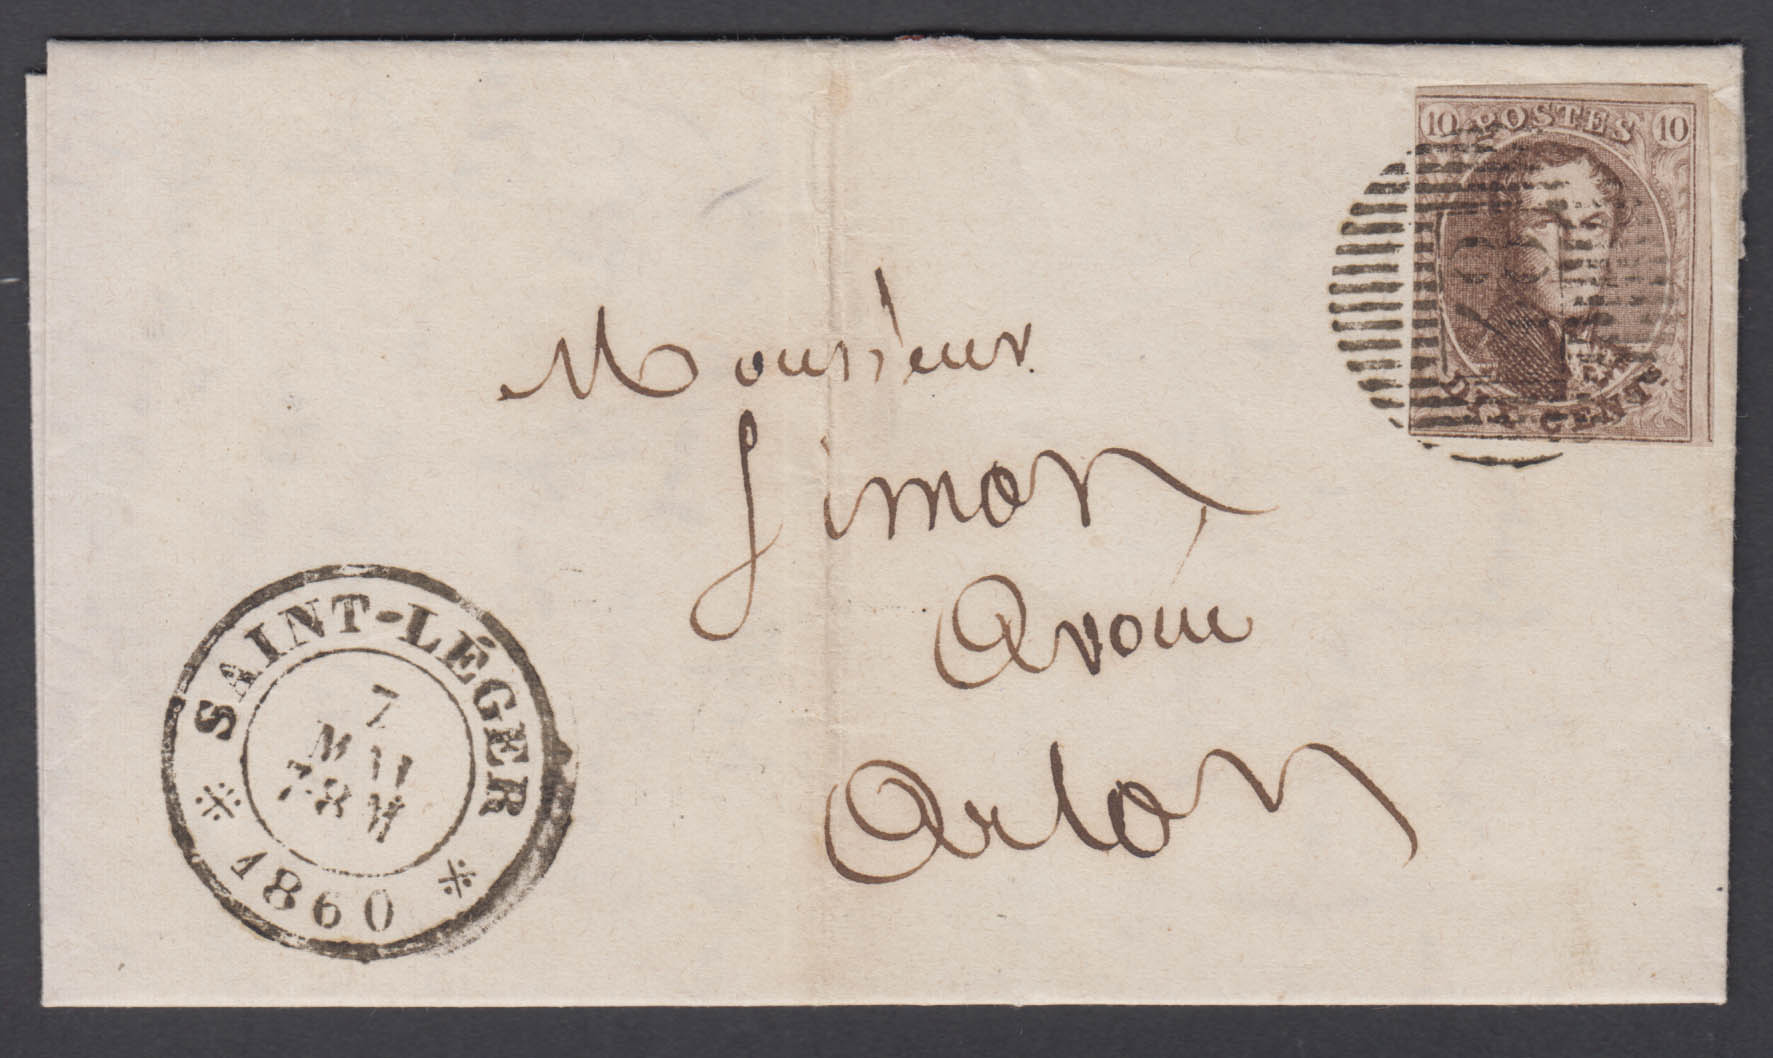 10 POSTES 10
DIX CENTS.
Monsieur
Simon
Avoué
Arlon
SAINT-LÉGER
7
MAI
7-8 M
1860